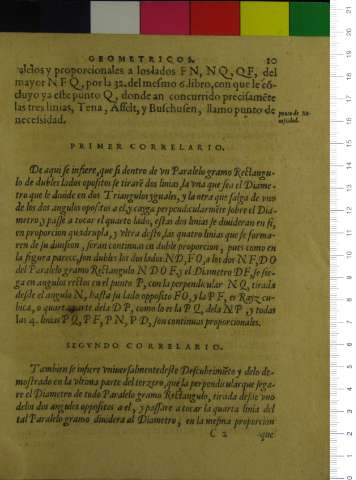 GEOMETRICOS. 10
alelos y proporcionales a los lados FN, NQ, QF, del
mayor NFQ, por la 32. del mesmo 6. libro, con que le cõ
cluyo ya este punto Q, donde an concurrido precisamēte
las tres linias, Tena, Asselt, y Buschusen, llamo punto de
necessidad.
punto de ne-
cessidad.
PRIMER CORRELARIO.
De aqui se infiere, que si dentro de vn Paralelo gramo Rectangu-
lo de dubles lados opositos se tirarē dos linias, la vna que sea el Diame-
tro que le diuide en dos Triangulos yguales, y la otra que salga de vno
de los dos angulos opositos a el, y cayga perpendicularmēte sobre el Dia-
metro, y passe a tocar el quarto lado, estas dos linias se diuideran en si,
en proporcion quadrupla, y vltra desto, las quatro linias que se forma-
ren de su diuision, seran continuas en duble proporcion, pues como en
la figura parece, son dubles los dos lados ND, FO, a los dos NF, DO
del Paralelo gramo Rectangulo NDOF, y el Diametro DF, se sie-
ga en angulos rectos en el punto P, con la perpendicular NQ, tirada
desde el angulo N, hasta su lado opposito FO, y la PF, es Rayz cu-
bica, o quarta parte dela DP, como lo es la PQ, dela NP, y todas
las 4. linias PQ, PF, PN, PD, son continuas proporcionales.
SEGVNDO CORRELARIO.
Tambien se infiere vniuersalmente deste Descubrimiēto y delo de-
mostrado en la vltima parte del terzero, que la perpendicular que sega-
re el Diametro de todo Paralelo gramo Rectangulo, tirada desde vno
delos dos angulos oppositos a el, y passare a tocar la quarta linia del
tal Paralelo gramo diuidera al Diametro, en la mesma proporcion
C 2 que